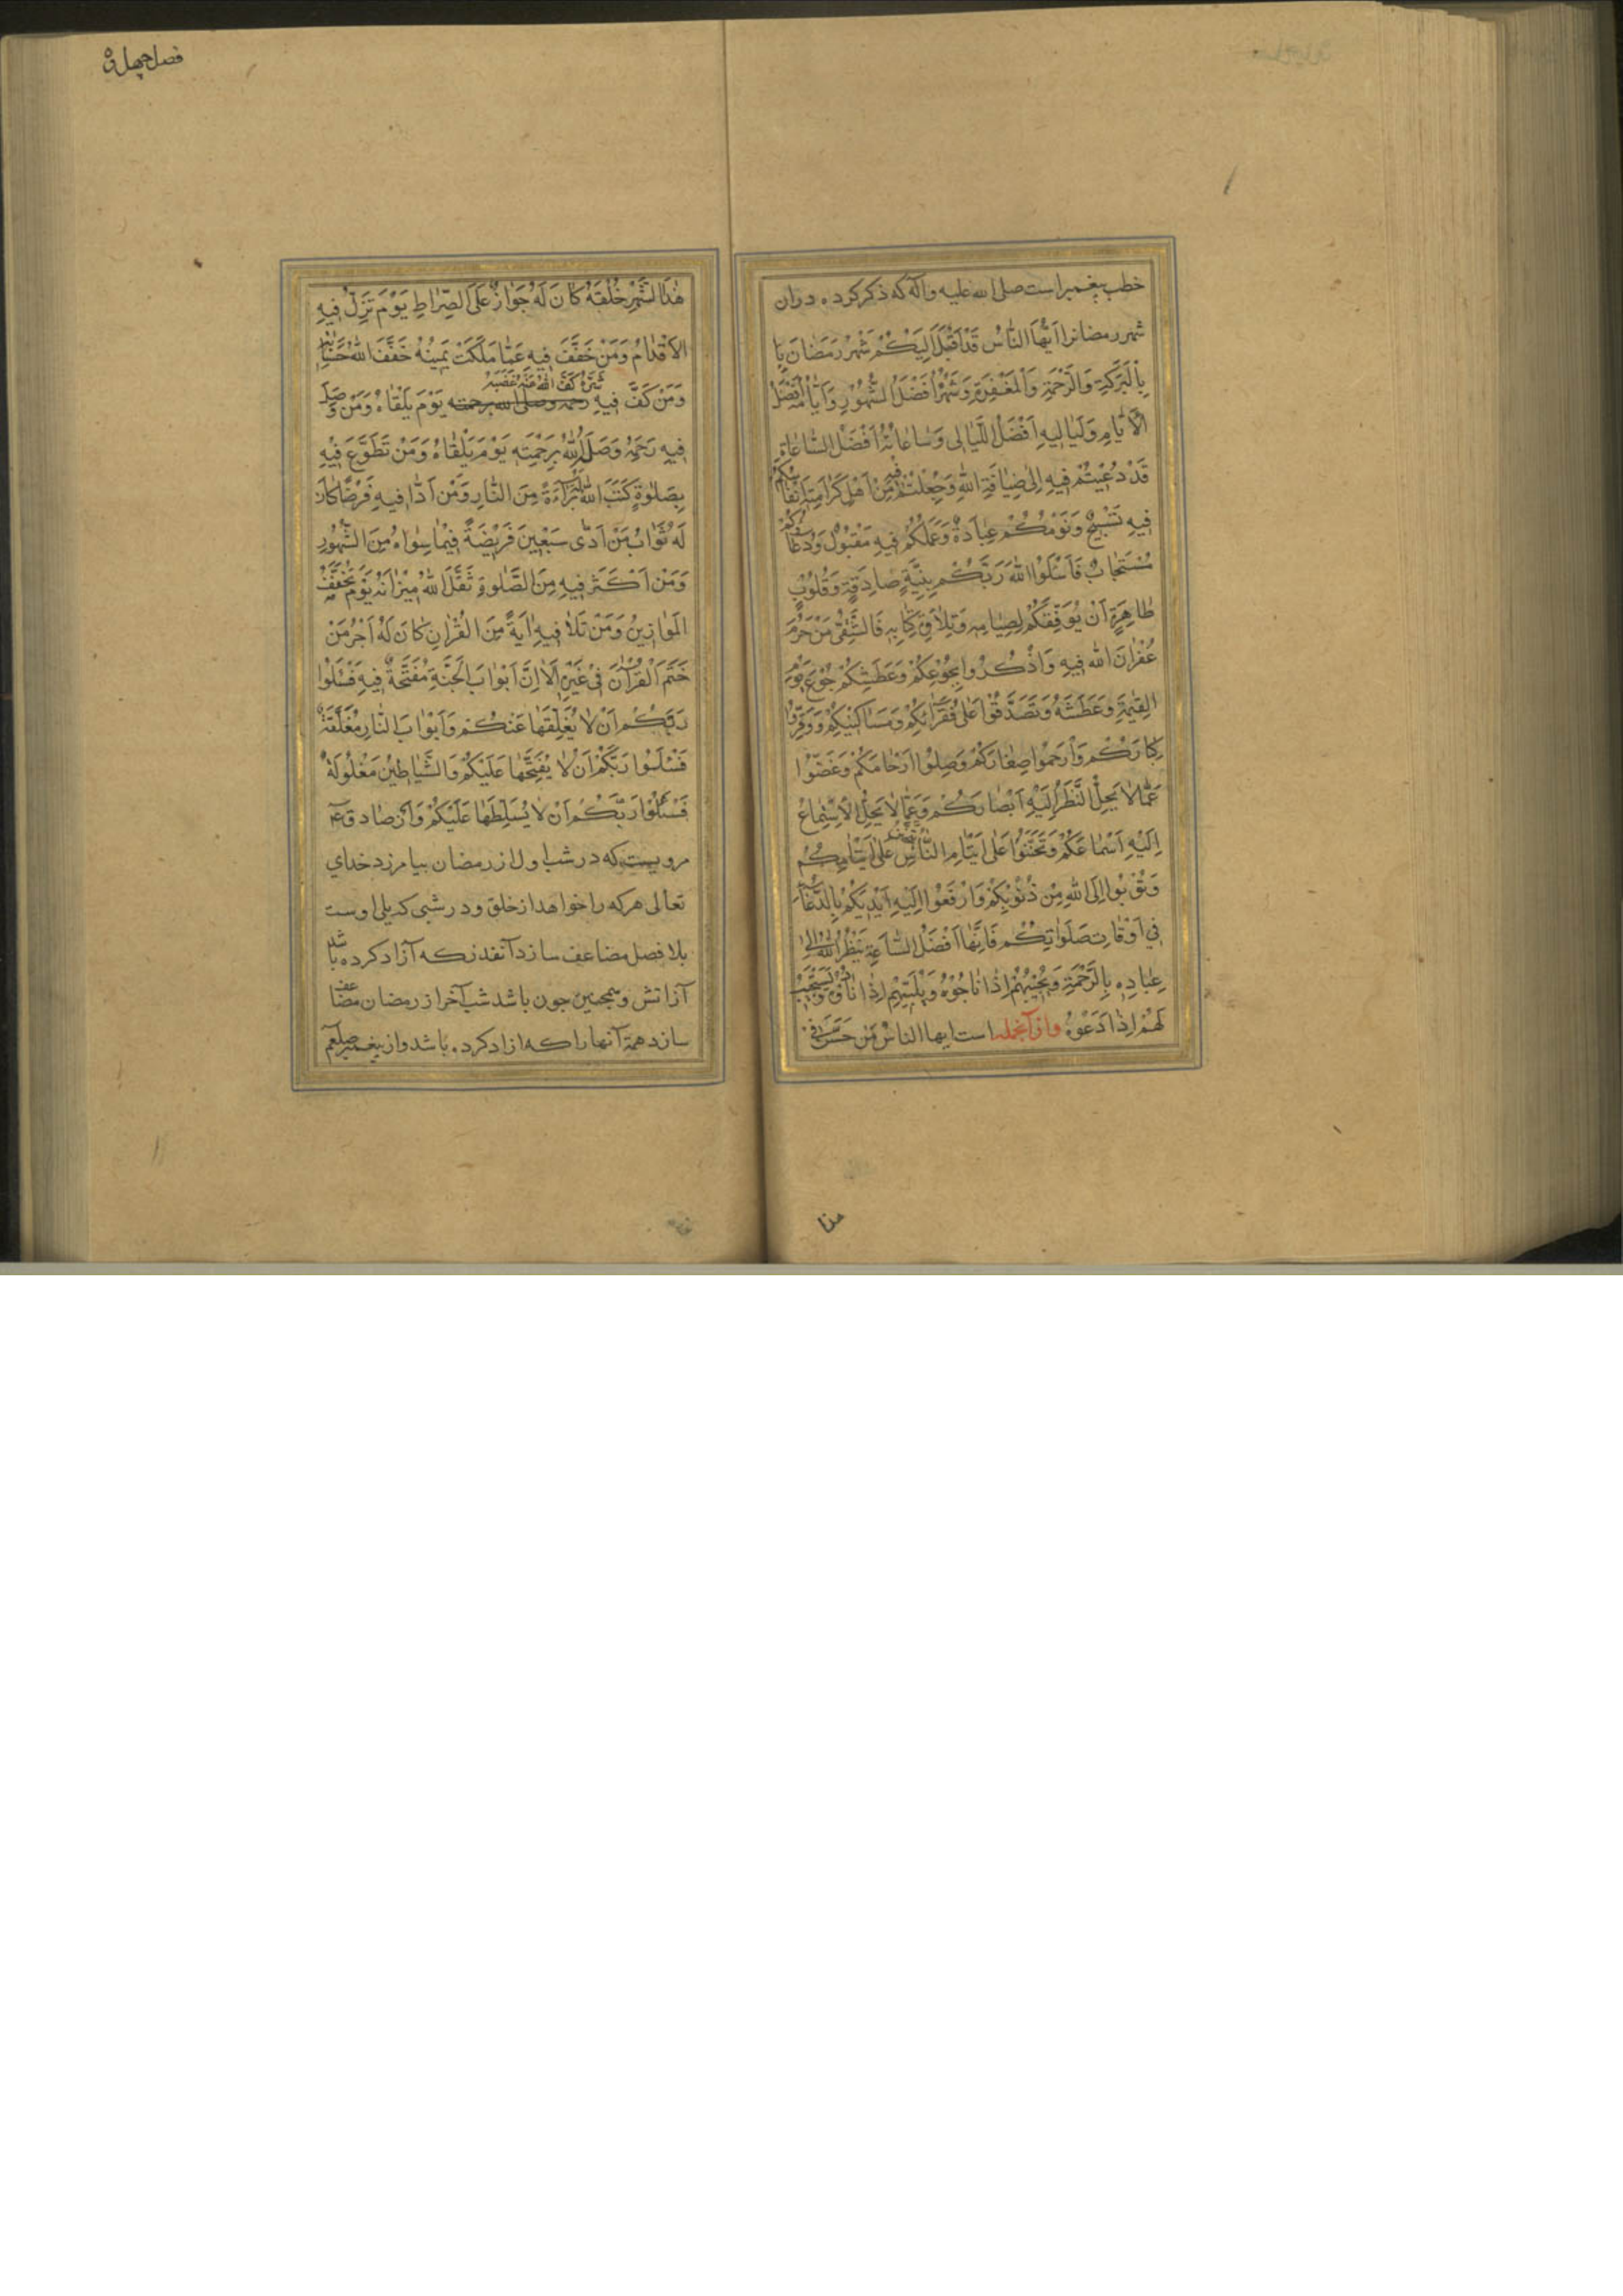 خطب پیغمبر است صلی الله علیه و آله که ذکر کرده در ان
شهر رمضانرا اَیُّهَا النّاسُ قَدْ اَقْبَلَ اِلَیْکُمْ شَهْرُ رَمَضانَ
بِالْبَرَکَةِ وَالرَّحْمَةِ وَالْمَغْفِرَةِ وَشَهْرٌ اَفْضَلُ الشُّهُورِ وَاَیّامُهُ اَفْضَلُ
الْاَیّامِ وَلَیالیهِ اَفْضَلُ اللَّیالی وَساعاتُهُ اَفْضَلُ السّاعاةِ
قَدْ دُعیتُمْ فیهِ اِلی ضِیافَةِ اللهِ وَجُعِلْتُمْ فیهِ مِنْ اَهْلِ کَرامَةِ اَنْفاسُکُمْ
فیهِ تَسْبیحٌ وَنَوْمُکُمْ عِبادَةٌ وَعَمَلُکُمْ فیهِ مَقْبُولٌ وَدُعاؤُکُمْ
مُسْتَجابٌ فَاسْئَلُوا اللهَ رَبَّکُمْ بِنِیَّةٍ صادِقَةٍ وَقُلُوبٍ
طاهِرَةٍ اَنْ یُوَفِّقَکُمْ لِصِیامِهِ وَتِلاوَةِ کِتابِهِ فَالشَّقِیُّ مَنْ حَرُمَ
غُفْرانَ الله فیهِ وَاذْکُرُوا بِجُوعِکُمْ وَعَطَشِکُمْ جُوعَ یَوْمِ
الْقِیٰمَةِ وَعَطَشَهُ وَتَصَدَّقُوا عَلی فُقَرائِکُمْ وَمَساکینِکُمْ وَوَقِّرُوا
کِبارَکُمْ وَارْحَمُوا صِغارَکُمْ وَصِلُوا اَرْحامَکُمْ وَغَضُّوا
عَمّا لا یَحِلُّ النَّظَرُ اِلَیْهِ اَبْصارَکُمْ وَعَمّا لا یَحِلُّ الْاِسْتِماعُ
اِلَیْهِ اَسْماعَکُمْ وَتَحَنَّنُوا عَلی اَیْتامِ النّاسِ یُتَحَنَّنْ عَلی اَیْتامِکُمْ
وَتُوبُوا اِلَی اللهِ مِنْ ذُنُوبِکُمْ وَارْفَعُوا اِلَیْهِ اَیْدِیَکُمْ بِالدُّعاءِ
فی اَوْقاتِ صَلَواتِکُمْ فَاِنَّها اَفْضَلُ السّاعَةِ یَنْظُرُ اللهُ اِلی
عِبادِهِ بِالرَّحْمَةِ وَیُجیبُهُمْ اِذا ناجُوهُ وَیُلَبّیهِمْ اِذا نادَوْهُ وَیَسْتَجیبُ
لَهُمْ اِذا دَعَوْهُ و از آنجمله است ایها الناسُ مَن حَسَّنَ فی
هٰذَا الشَّهْرِ خُلُقَهُ کانَ لَهُ جَوازٌ عَلَی الصِّراطِ یَوْمَ تَزِلُّ فیهِ
الْاَقْدامُ وَمَنْ خَفَّفَ فیهِ عَمّا مَلَکَتْ یَمینُهُ خَفَّفَ اللهُ حِسابَهُ
شَرَّهُ کَفَّ اللهُ عَنْهُ غَضَبَهُ
وَمَنْ کَفَّ فیهِ رحمه وصلی الله برحمته یَوْمَ یَلْقاهُ وَمَنْ وَصَلَ
فیهِ رَحِمَهُ وَصَلَهُ اللهُ بِرَحْمَتِهِ یَوْمَ یَلْقاهُ وَمَنْ تَطَوَّعَ فیْهِ
بِصَلوٰةٍ کَتَبَ اللهُ لَهُ بَرآءَةً مِنَ النّارِ وَمَنْ اَدّا فیهِ فَرْضًا کانَ
لَهُ ثَوابُ مَنْ اَدّی سَبْعینَ فَریضَةً فیْما سِواهُ مِنَ الشُّهُورِ
وَمَنْ اَکْثَرَ فیهِ مِنَ الصَّلوةِ ثَقَّلَ اللهُ میزانَهُ یَوْمَ یُخَفَّفُ
الْمَوازینُ وَمَنْ تَلا فیهِ اٰیَةً مِنَ الْقُرْانِ کانَ لَهُ اَجْرُ مَنْ
خَتَمَ الْقُرْآنَ فی غَیْرِهِ اَلا اِنَّ اَبْوابَ الْجَنَّةِ مُفَتَّحَةٌ فیهِ فَسْئَلُوا
رَبَّکُمْ اَنْ لا یُغَلِّقَها عَنْکُمْ وَاَبْوابَ النّارِ مُغَلَّقَةٌ
فَسْئَلُوا رَبَّکُمْ اَنْ لا یُفَتِّحَها عَلَیْکُمْ وَالشَّیاطینُ مَغْلُولَةٌ
فَسْئَلُوا رَبَّکُمْ اَنْ لا یُسَلِّطَها عَلَیْکُمْ و از صادق ع
مرویست که در شب اول از رمضان بیامرزد خدای
تعالی هر که را خواهد از خلق و در شبی که یلی اوست
بلا فصل مضاعف سازد آنقدر که آزاد کرده باشد
از اتش و همچنین چون باشد شب آخر از رمضان مضاعف
سازد همهٔ آنها را که ازاد کرده باشد و از پیغمبر صلعم
هذا